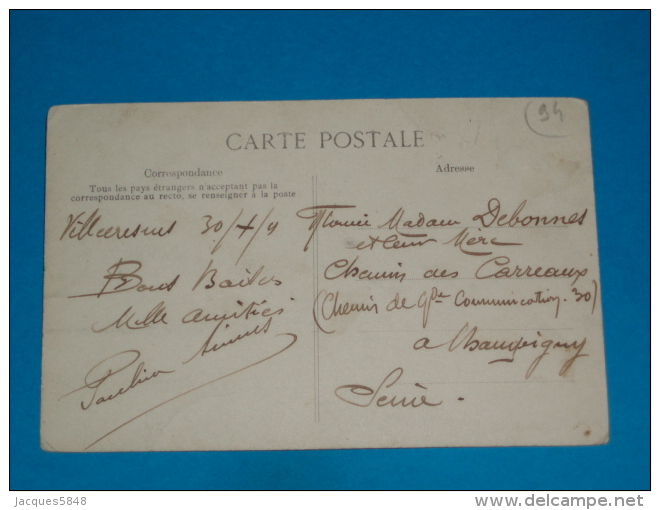 94
CARTE POSTALE
Correspondance
Tous les pays étrangers n'acceptant pas la
correspondance au recto, se renseigner à la poste
Villecresnes 30/X/
Bons Baisers
Mille amitiés
Adresse
Madam Debonnes
et leur Mère
Chemin des Carreaux
(Chemin de Gde Communication. 30)
a Champigny
Seine.
Jacques5848
delcampe.net